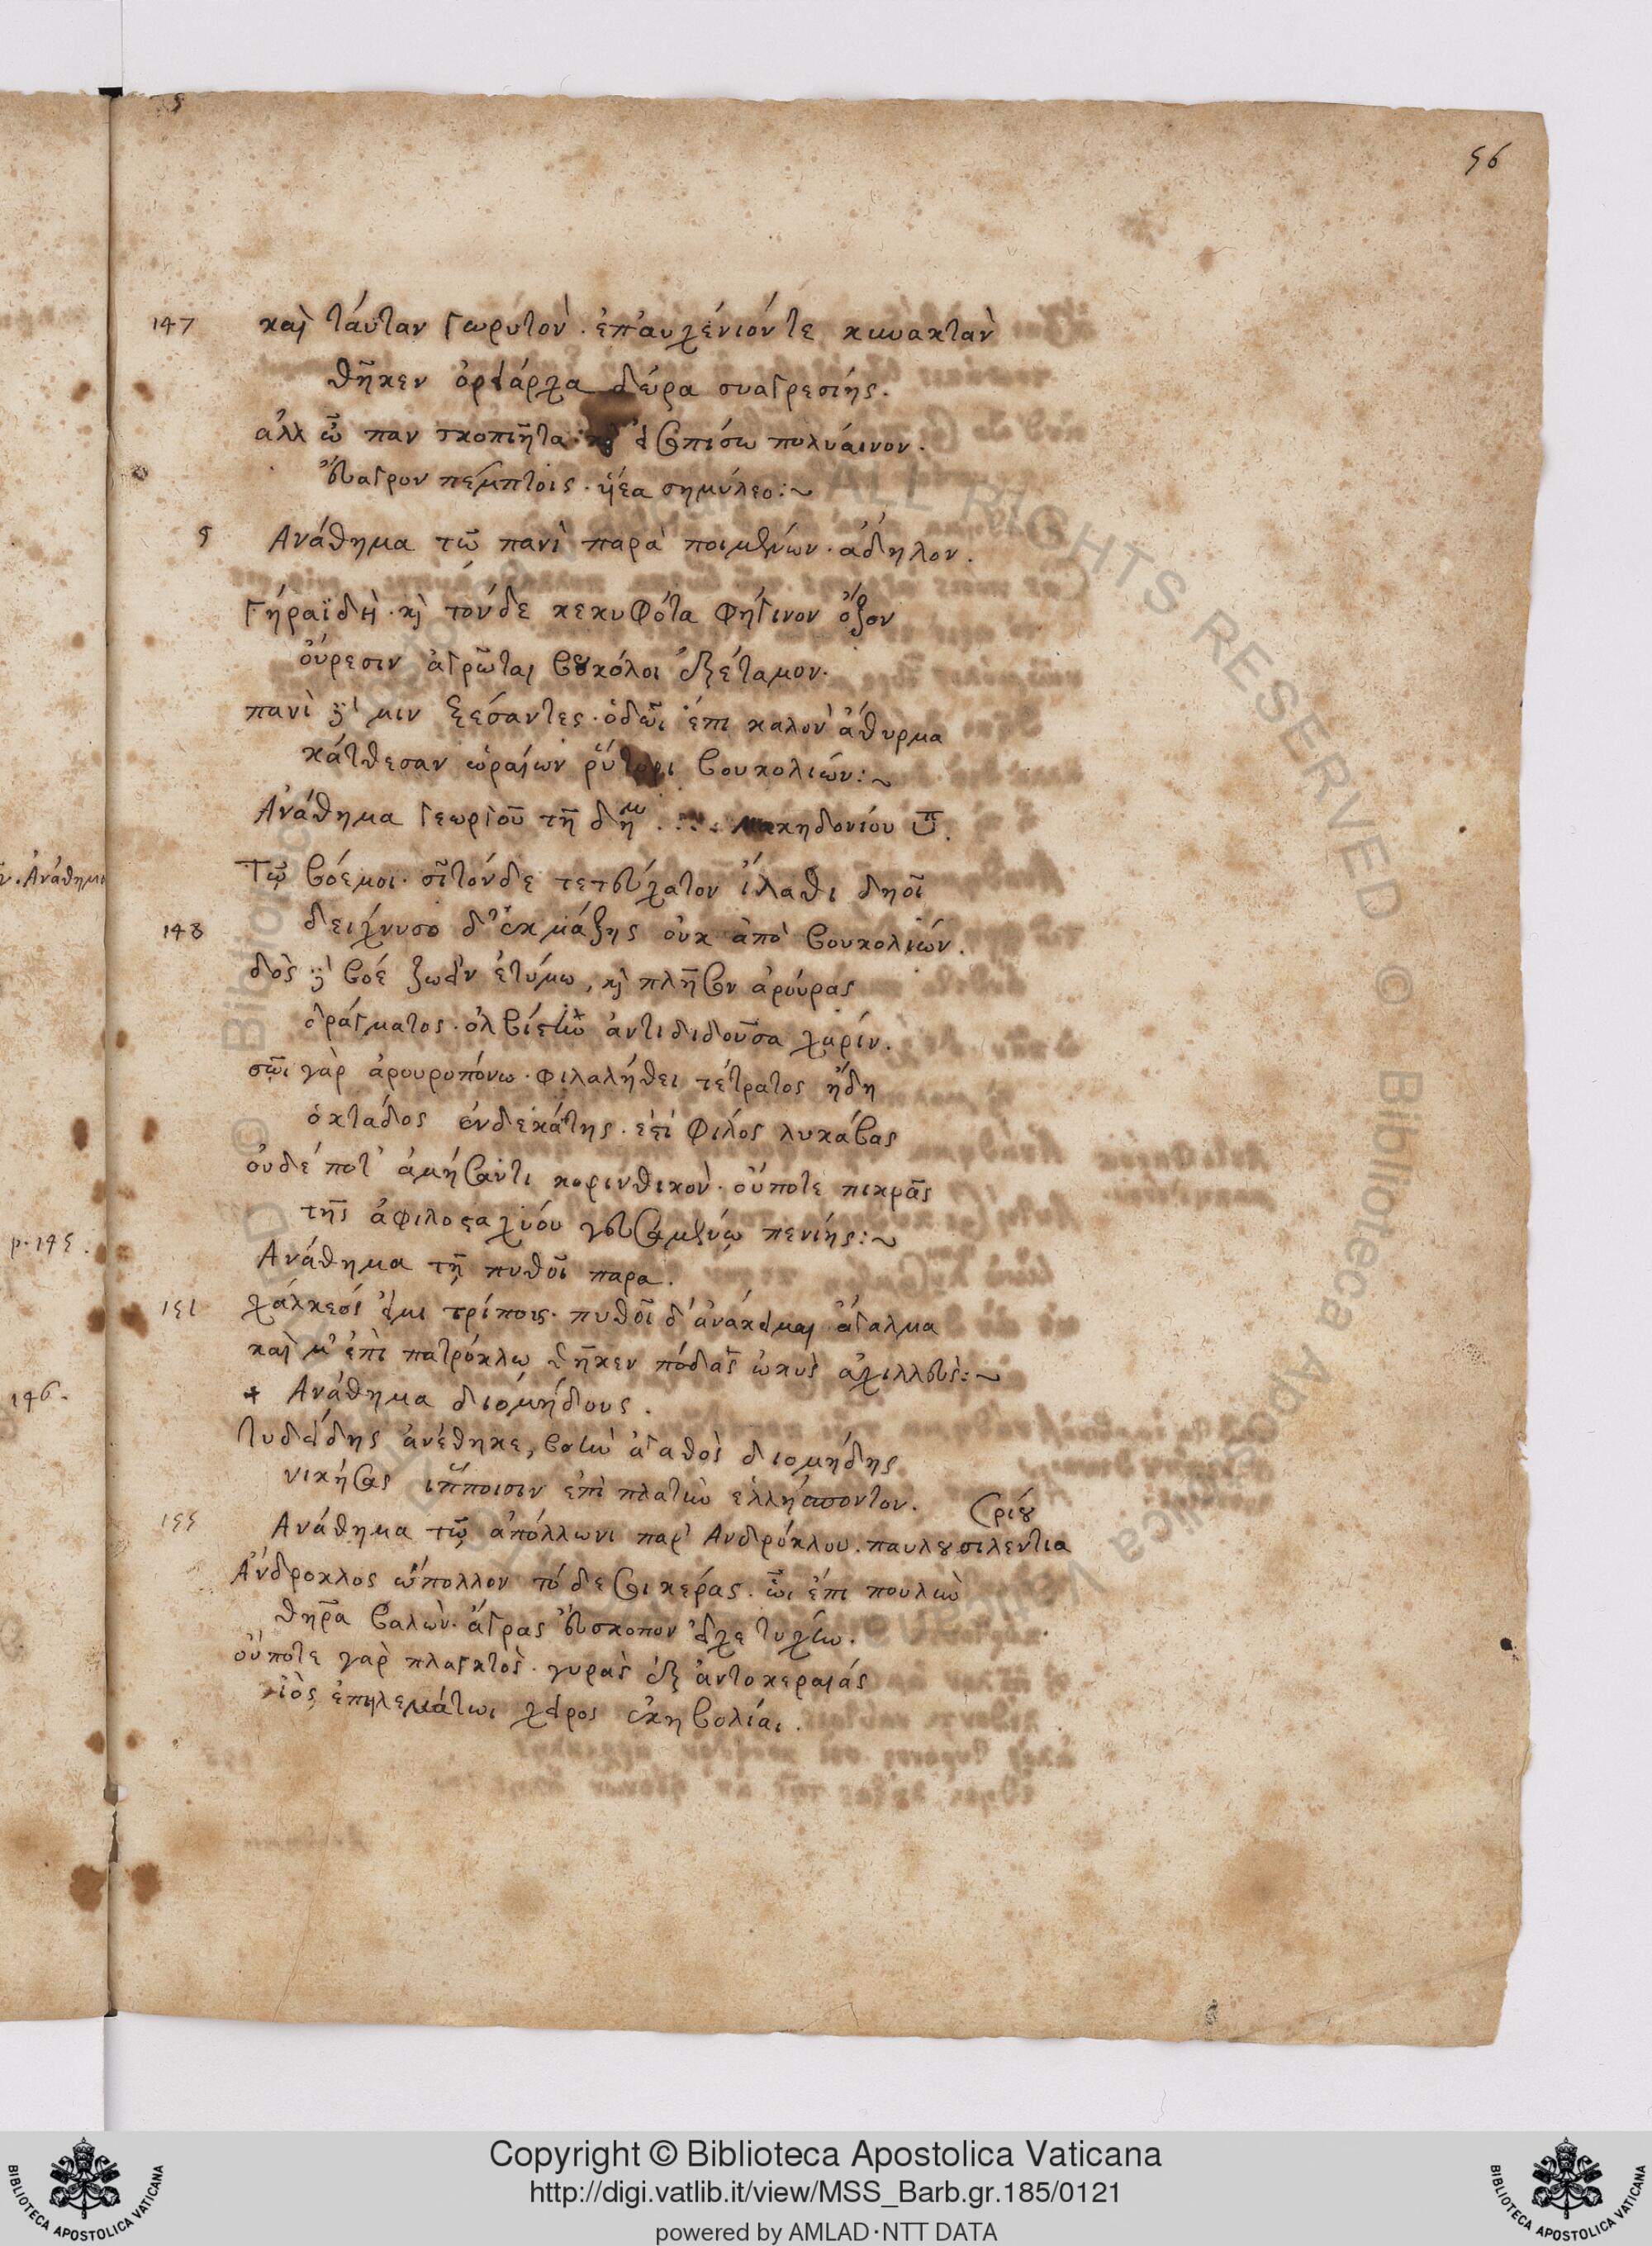 56
147 καὶ ταύταν γωρυτὸν· ἐπαυχένιόν τε κυνακτὰν
θῆκεν ὀρειάρχα δῶρα συαγρεσίης.
ἀλλ ὦ παν σκοπιῆτα· κὶ εἰσοπίσω πολύαινον.
εὔαγρον πέμποις· υἱέα σημύλεω:~
ϛ Ανάθημα τῶ πανὶ παρὰ ποιμένων· ἄδηλον.
γήραϊ δὴ· κὶ τόνδε κεκυφότα φήγινον ὄζον
οὔρεσιν ἀγρῶται βουκόλοι ἐξέταμον·
πανὶ δέ μιν ξέσαντες· ὁδῶι ἔπι καλὸν ἄθυρμα
κάτθεσαν ὡραίων ῥύτορι βουκολίων:~
Ανάθημα γεωργοῦ τῆ δημ μακηδονίου ὑπ.
Τῷ βόε μοι· σῖτον δὲ τετεύχατον ἵλαθι δηοῖ
148 δείχνυσο δ' ἐκ μάζης οὐκ ἀπὸ βουκολίων.
δὸς δὲ βόε ζώειν ἐτύμω, κὶ πλῆσον ἀρούρας
δράγματος· ὀλβίστην ἀντιδιδοῦσα χάριν.
σῶι γὰρ ἀρουροπόνω· φιλαλήθει τέτρατος ἤδη
ὀκτάδος ἑνδεκάτης· ἐστὶ φίλος λυκάβας
οὐδέποτ' ἀμήσαντι κορινθικὸν· οὔποτε πικρᾶς
τῆς ἀφιλοσταχύου γευσαμένῳ πενίης:~
Ανάθημα τῇ πυθοῖ παρα.
151 χάλκεός εἰμι τρίπους· πυθοῖ δ' ἀνάκειμαι ἄγαλμα
καὶ μ' ἐπὶ πατρόκλω θῆκεν πόδας ὠκὺς ἀχιλλεὺς:~
+ Ανάθημα διομήδους.
τυδείδης ἀνέθηκε, βοὴν ἀγαθὸς διομήδης
νικήσας ἵπποισιν ἐπὶ πλατὺν ἑλλήσποντον.
155 Ανάθημα τῷ ἀπόλλωνι παρ' Ανδρόκλου. παυλου σιλεντια
ρίου
Ἄνδροκλος ὤπολλον τόδε σοι κέρας. ὧι ἔπι πουλὺν
θῆρα βαλὼν· ἄγρας εὔσκοπον εἶχε τύχην.
οὔποτε γὰρ πλαγκτὸς· γυρᾶς ἐξ ἆντο κεραίας
ἰὸς ἐπηλεμάτωι χειρὸς ἑκηβολίαι.
ν. Ἀνάθημα
p. 145.
146.
Copyright © Biblioteca Apostolica Vaticana
http://digi.vatlib.it/view/MSS_Barb.gr.185/0121
powered by AMLAD·NTT DATA